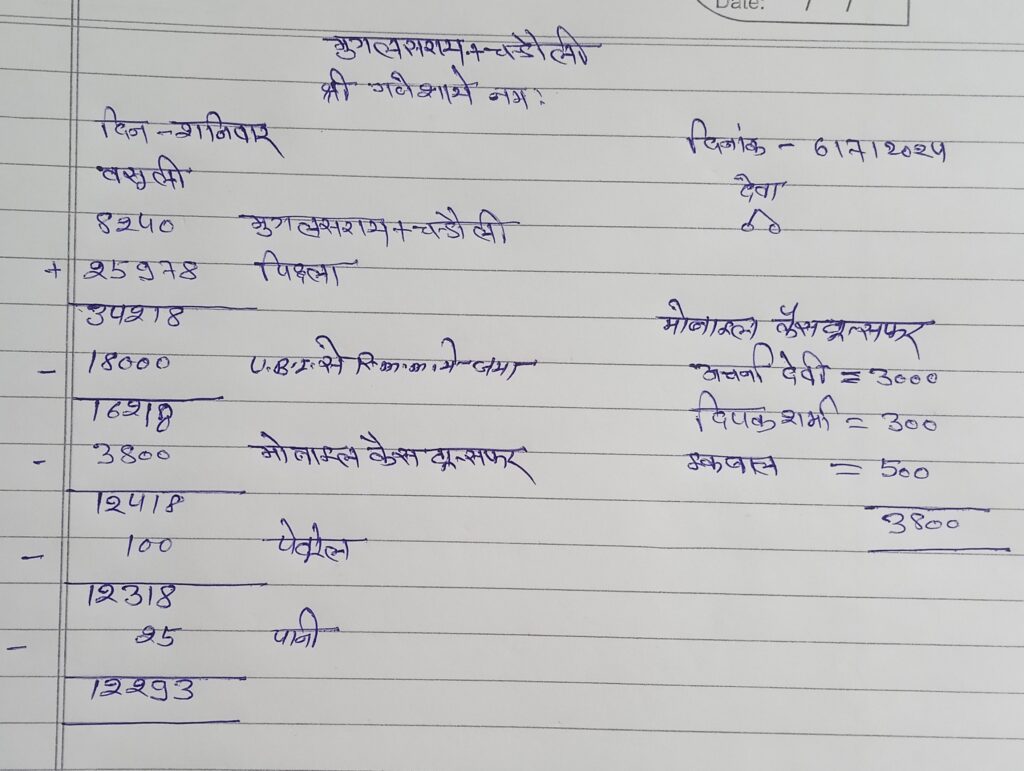 Date: / /
मुगलसराय+चन्डौली
श्री गणेशाये नमः
दिन - शनिवार
दिनांक - 6/7/2024
वसुली
देवा
8240 मुगलसराय+चन्डौली
+ 25978 पिछला
34218
- 18000 U.B.I. से सि.क.क. मे जमा
16218
- 3800 मोबाइल कैस ट्रान्सफर
12418
- 100 पेट्रोल
12318
- 25 पानी
12293
मोबाइल कैस ट्रान्सफर
अर्चना देवी = 3000
दिपक शर्मा = 300
इकबाल = 500
3800